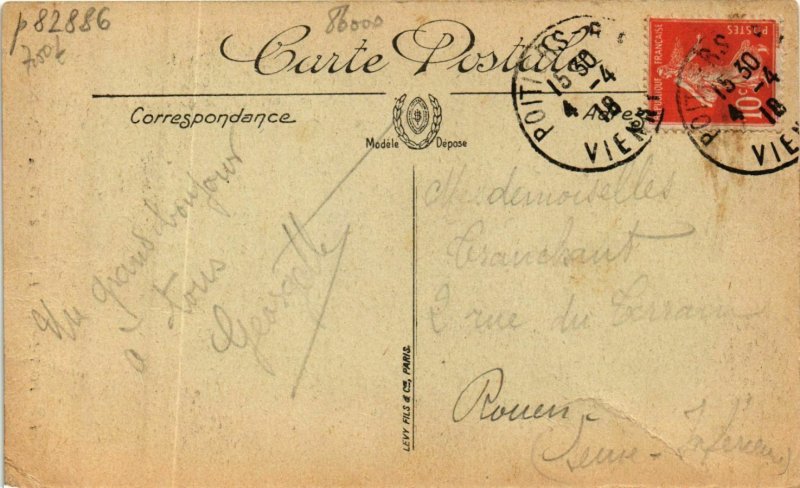 p82886
86000
Carte Postale
Correspondance
Modèle Déposé
POITIERS
15 30
4 -4
18
VIENNE
POSTES
RÉPUBLIQUE FRANÇAISE
10c
15 30
4 -4
18
VIEN
Un grand bonjour
à tous
Georgette
LEVY FILS & Cie, PARIS.
Mesdemoiselles
Tranchant
2 rue du Terrain
Rouen
(Seine-Inférieure)